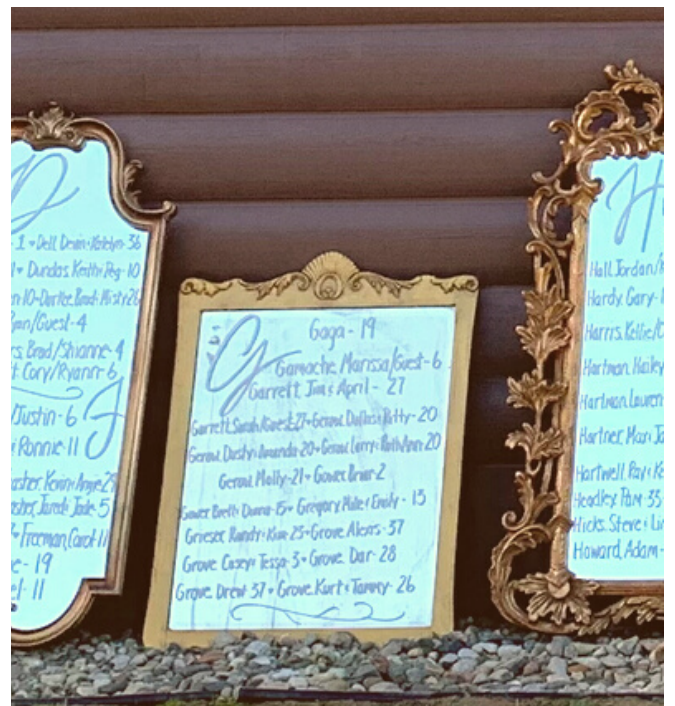 D
1 • Dell, Devin & Katelyn - 36
• Dundas, Keith & Peg - 10
10 • Dortlee, Brad & Misty 26
/Guest - 4
Brad/Shianne - 4
Cory/Ryann - 6
F
/Justin - 6
Ronnie - 11
Kevin & Angie 29
Jared & Jade - 5
• Freeman, Carol 11
- 19
- 11
G
Gaga - 19
Gamache, Marissa/Guest - 6
Garrett, Jim & April - 27
Garrett, Sarah/Guest 27 • Gerow, Dallas & Patty - 20
Gerow, Dusty & Amanda - 20 • Gerow, Larry & RuthAnn 20
Gerow, Molly - 21 • Gower, Briar - 2
Gower, Brett & Dianna - 15 • Gregory, Mike & Emily - 13
Grieser, Randy & Kim - 25 • Grove, Alexis - 37
Grove, Casey & Tessa - 3 • Grove, Dar - 28
Grove, Drew 37 • Grove, Kurt & Tammy - 26
H
Hall, Jordan/
Hardy, Gary -
Harris, Kellie/
Hartman, Hailey
Hartman, Lauren
Hartner, Max &
Hartwell, Ray &
Headley, Pam - 35
Hicks, Steve &
Howard, Adam -